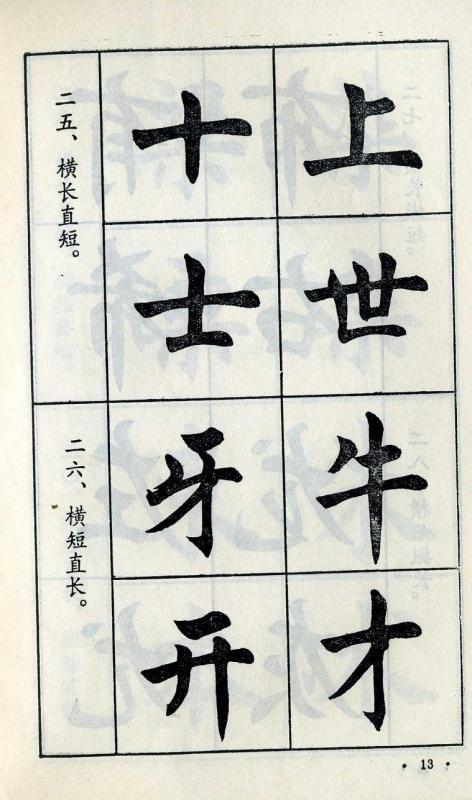 二五、横长直短。
十上
士世
二六、横短直长。
牙牛
开才
·13·